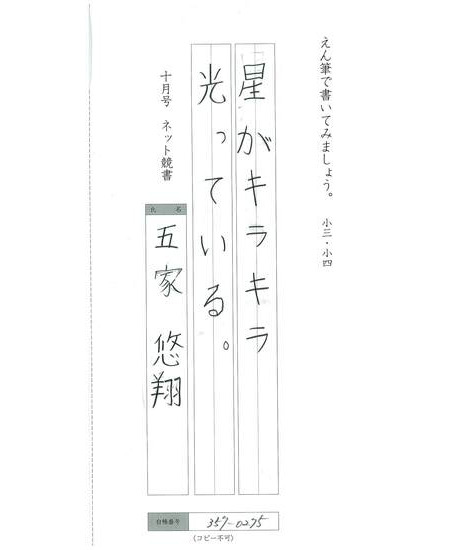 えん筆で書いてみましょう。 小三・小四
星がキラキラ
光っている。
十月号 ネット競書
氏 名
五家 悠翔
白楊番号
357-0275
(コピー不可)